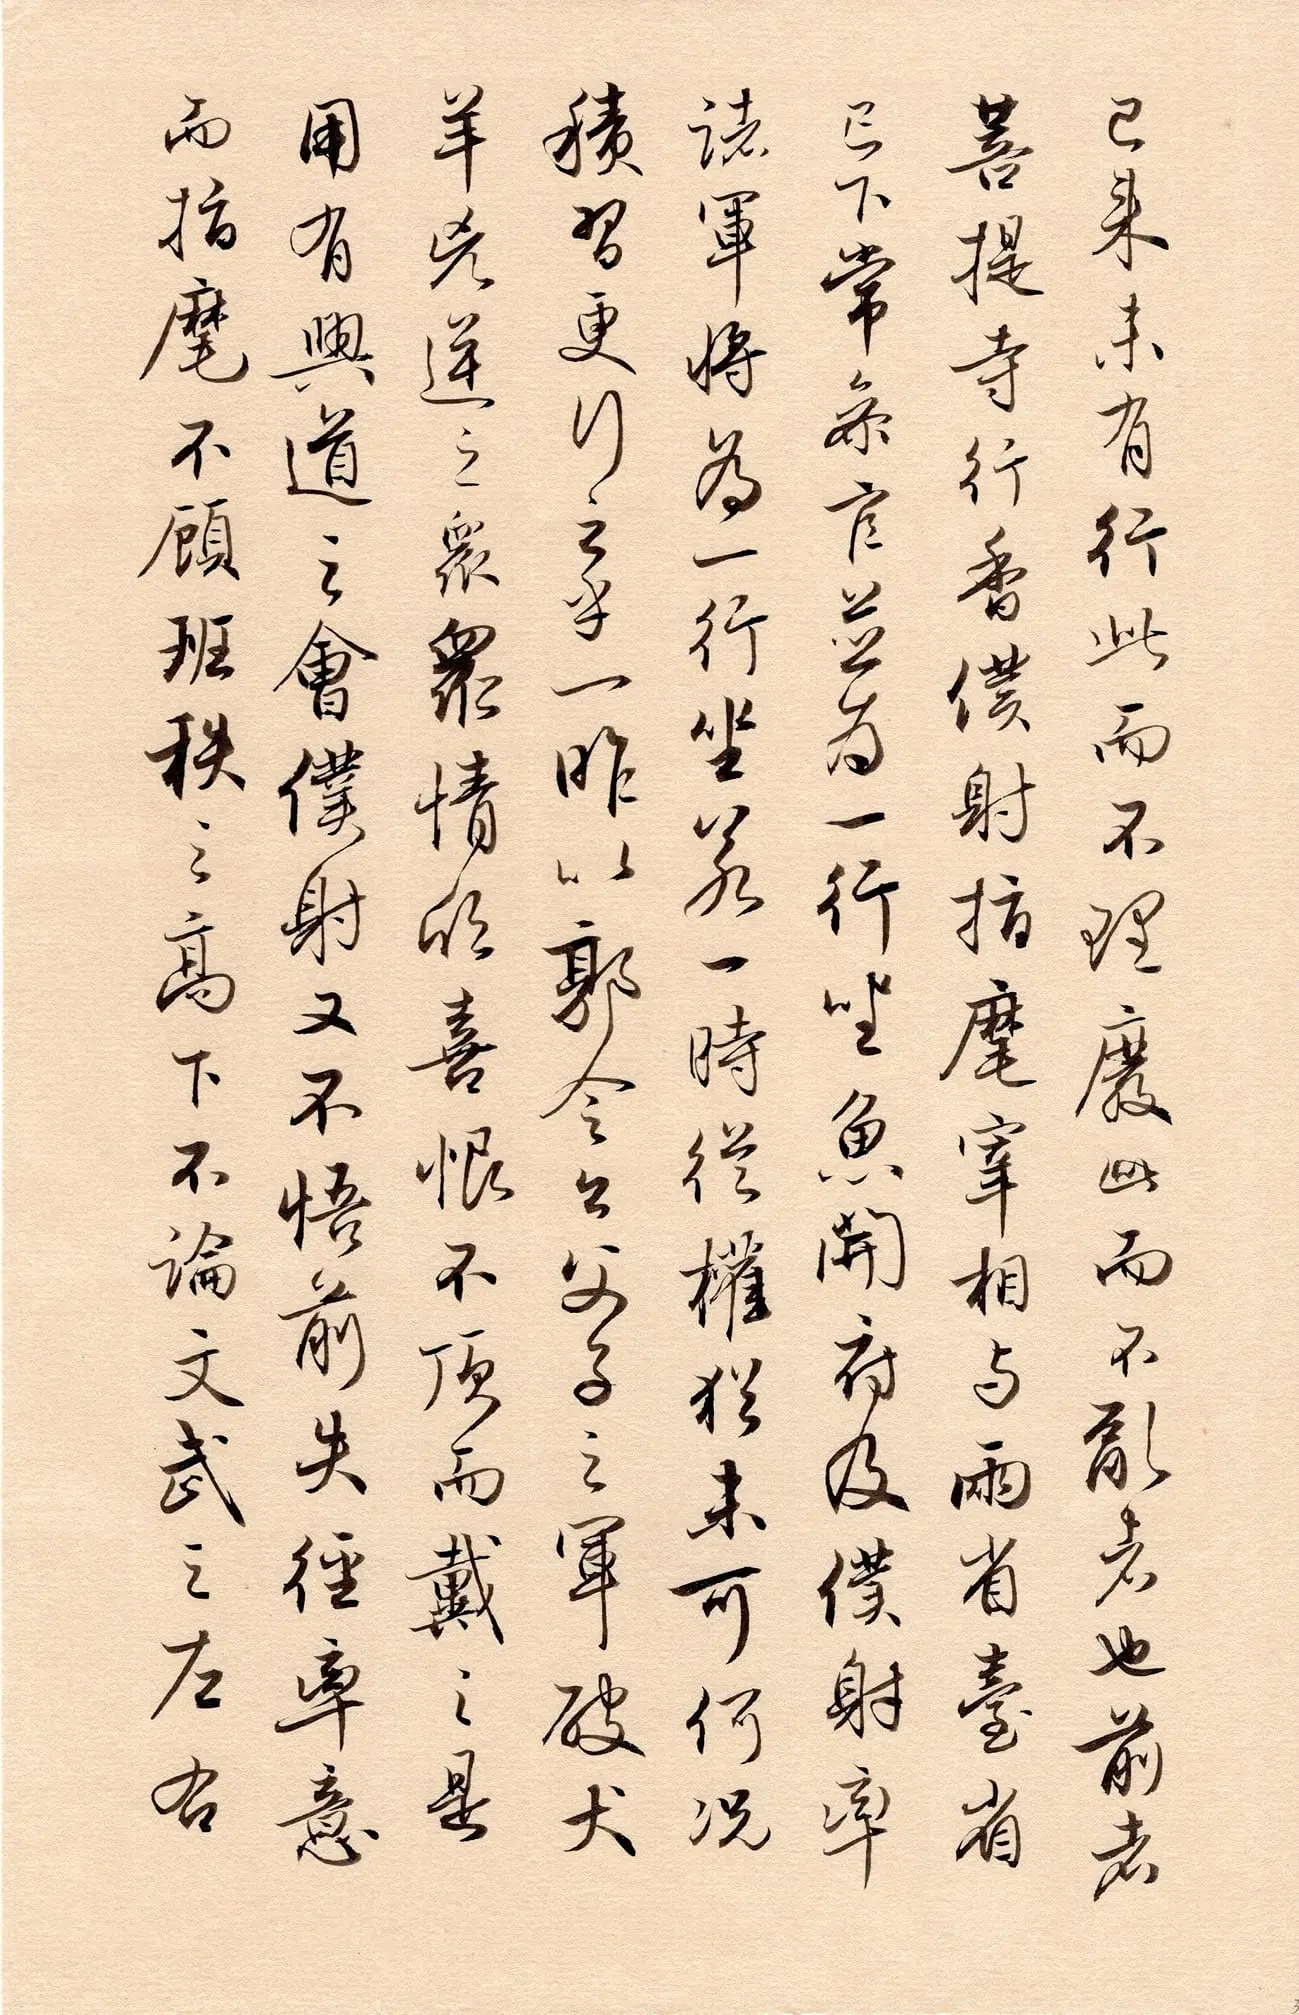 已来未有行此而不理廢此而不亂者也前者
菩提寺行香僕射指麾宰相与兩省臺省
已下常参官並為一行坐魚開府及僕射率
諸軍將為一行坐若一時從權猶未可何況
積習更行之乎一昨以郭令公父子之軍破犬
羊兇逆之衆衆情欣喜恨不頂而戴之是
用有興道之會僕射又不悟前失徑率意
而指麾不顧班秩之高下不論文武之左右